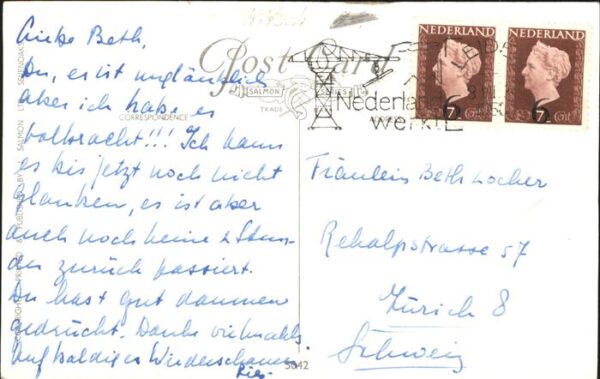 Liebe Beth,
Du, es ist unglaublich
aber ich habe es
vollbracht!!! Ich kann
es bis jetzt noch nicht
glauben, es ist aber
auch noch keine 2 Stun-
den zurück passiert.
Du hast gut daumen
gedrückt. Danke vielmals
Auf baldiges Wiederschauen
Post Card
SALMON SERIES
TRADE
CORRESPONDENCE
5042
Nederland
werkt
NEDERLAND
6
NEDERLAND
6
Fräulein Beth Locher
Rehalpstrasse 57
Zürich 8
Schweiz